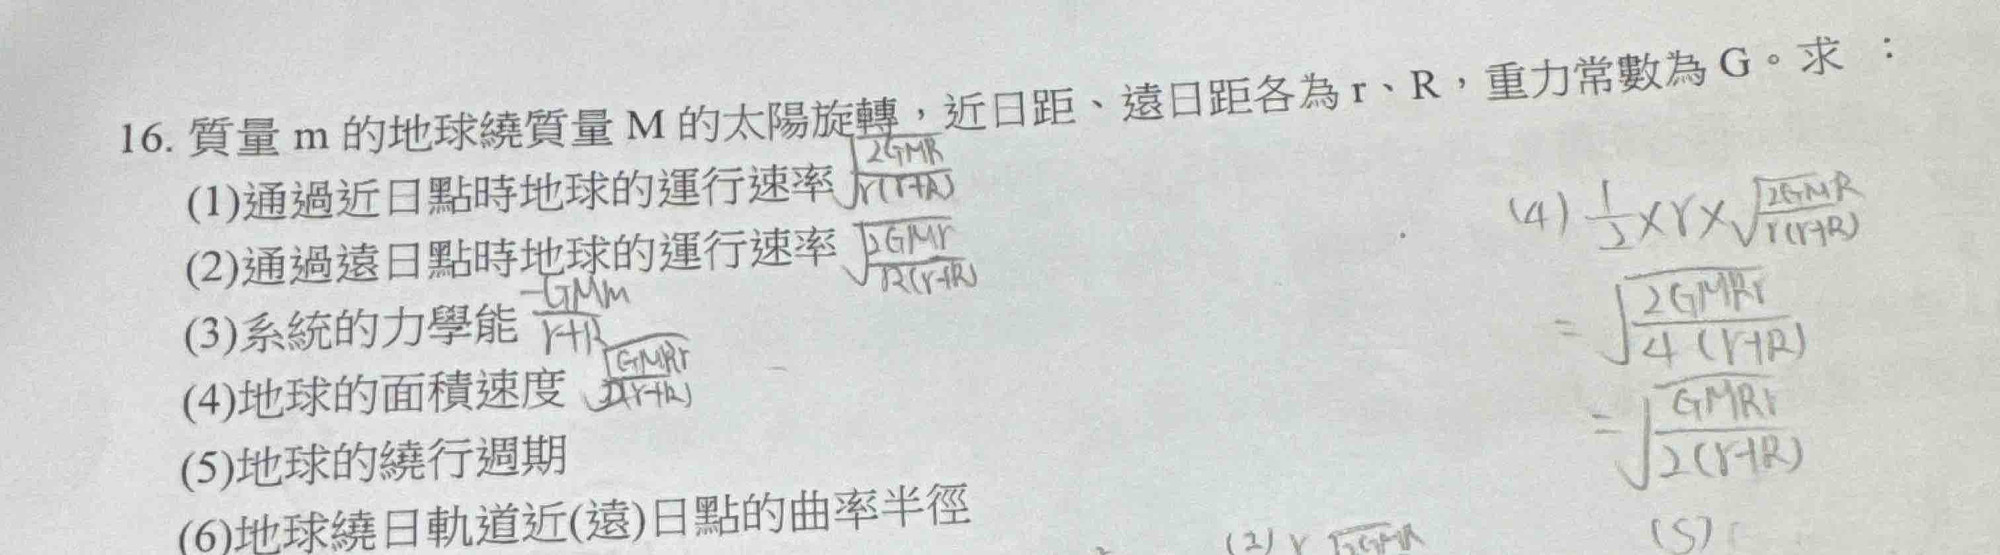 16. 質量 m 的地球繞質量 M 的太陽旋轉，近日距、遠日距各為 r、R，重力常數為 G。求：
(1)通過近日點時地球的運行速率 √(2GMR/r(r+R))
(2)通過遠日點時地球的運行速率 √(2GMr/R(r+R))
(3)系統的力學能 -GMm/r+R
(4)地球的面積速度 √(GMRr/2(r+R))
(5)地球的繞行週期
(6)地球繞日軌道近(遠)日點的曲率半徑
(4) 1/2 × r × √(2GMR/r(r+R))
= √(2GMRr/4(r+R))
= √(GMRr/2(r+R))
(5)
(2) r